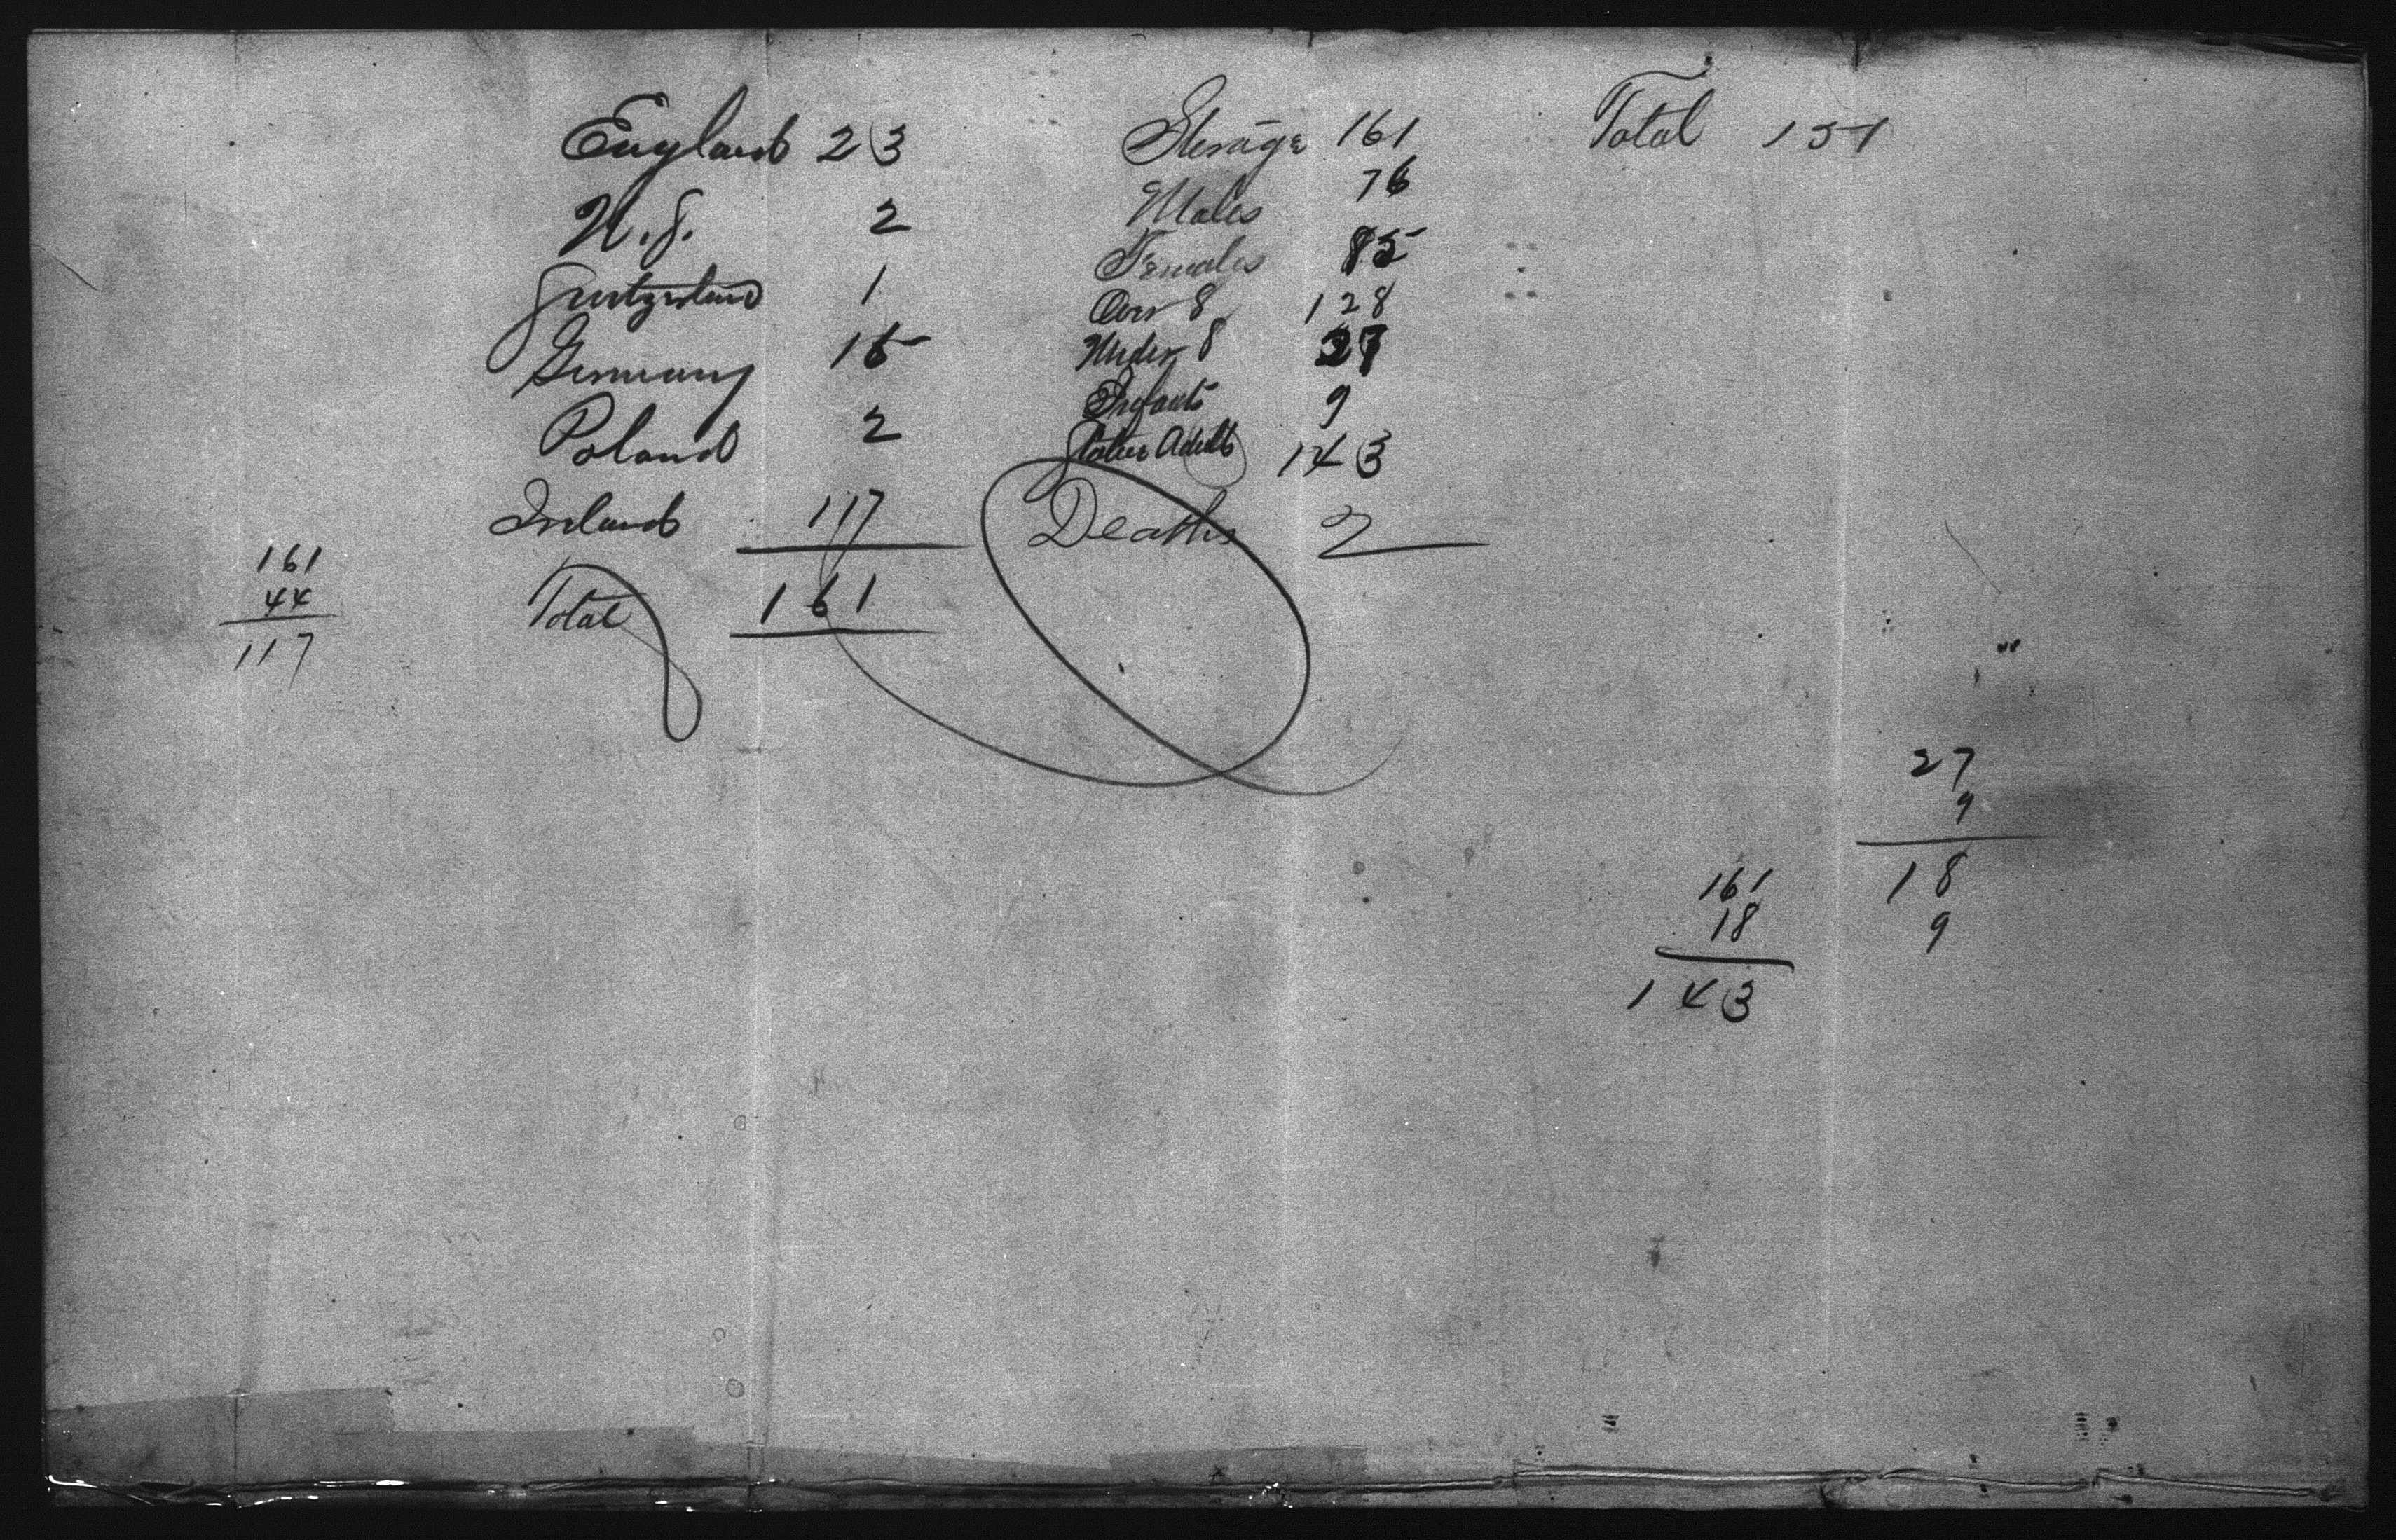 England 23
U.S. 2
Switzerland 1
Germany 16
Poland 2
Ireland 117
Total 161
161
44
117
Sterage 161
Males 76
Females 85
Over 8 128
Under 8 27
Infants 9
Adults 143
Deaths 2
Total 151
27
9
18
9
161
18
143